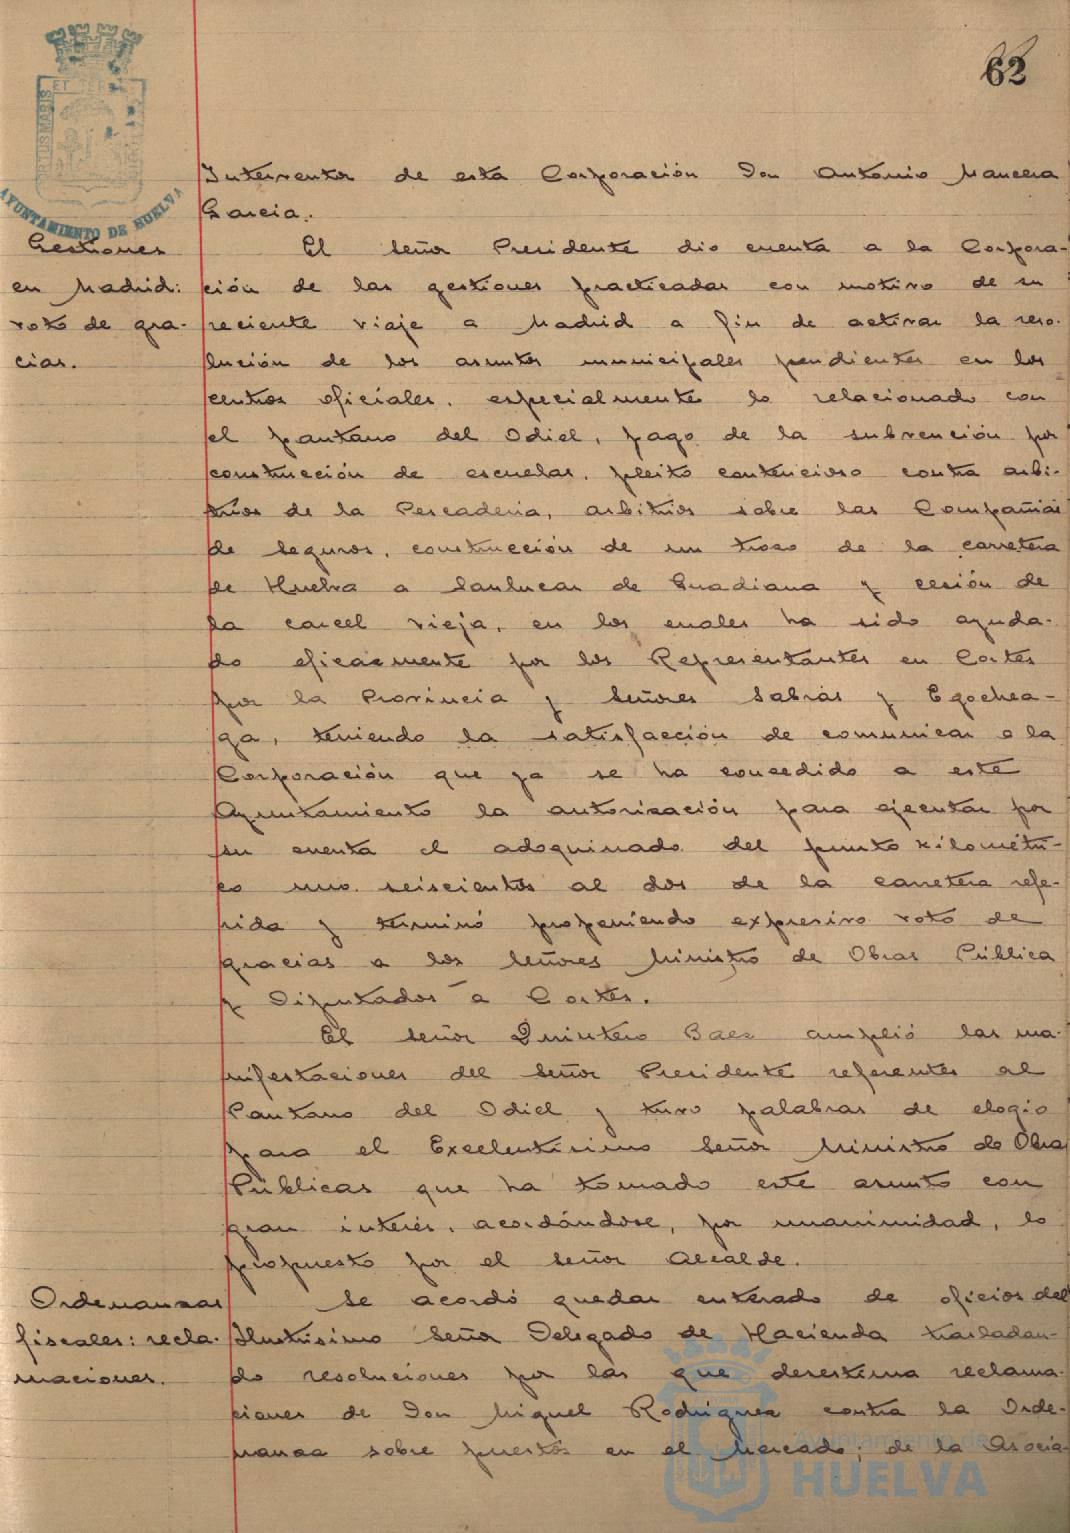 62
PORTUS MARIS ET TERRAE
AYUNTAMIENTO DE HUELVA
Interventor de esta Corporación Don Antonio Mancera
Garcia.
Gestiones
en Madrid:
voto de gra-
cias.
El Señor Presidente dio cuenta a la Corpora-
ción de las gestiones practicadas con motivo de su
reciente viaje a Madrid a fin de activar la reso-
lución de los asuntos municipales pendientes en los
centros oficiales, especialmente lo relacionado con
el pantano del Odiel, pago de la subvención por
construcción de escuelas, pleito contencioso contra arbi-
trios de la Pescaderia, arbitrios sobre las Compañias
de Seguros, construcción de un trozo de la carretera
de Huelva a Sanlucar de Guadiana y cesión de
la carcel vieja, en los cuales ha sido ayuda-
do eficazmente por los Representantes en Cortes
por la Provincia y Señores Sabrás y Egochea-
ga, teniendo la satisfacción de comunicar a la
Corporación que ya se ha concedido a este
Ayuntamiento la autorización para ejecutar por
su cuenta el adoquinado del punto kilométri-
co uno seiscientos al dos de la carretera refe-
rida y terminó proponiendo expresivo voto de
gracias a los Señores Ministro de Obras Pública
y Diputados a Cortes.
El señor Quintero Baez amplió las ma-
nifestaciones del Señor Presidente referentes al
Pantano del Odiel y tuvo palabras de elogio
para el Excelentisimo Señor Ministro de Obras
Públicas que ha tomado este asunto con
gran interés, acordándose, por unanimidad, lo
propuesto por el Señor Alcalde.
Ordenanzas
fiscales: recla-
maciones.
Se acordó quedar enterado de oficios del
Ilustrisimo Señor Delegado de Hacienda trasladan-
do resoluciones por las que desestima reclama-
ciones de Don Miguel Rodriguez contra la Orde-
nanza sobre puestos en el Mercado; de la Asocia-
Ayuntamiento de
HUELVA